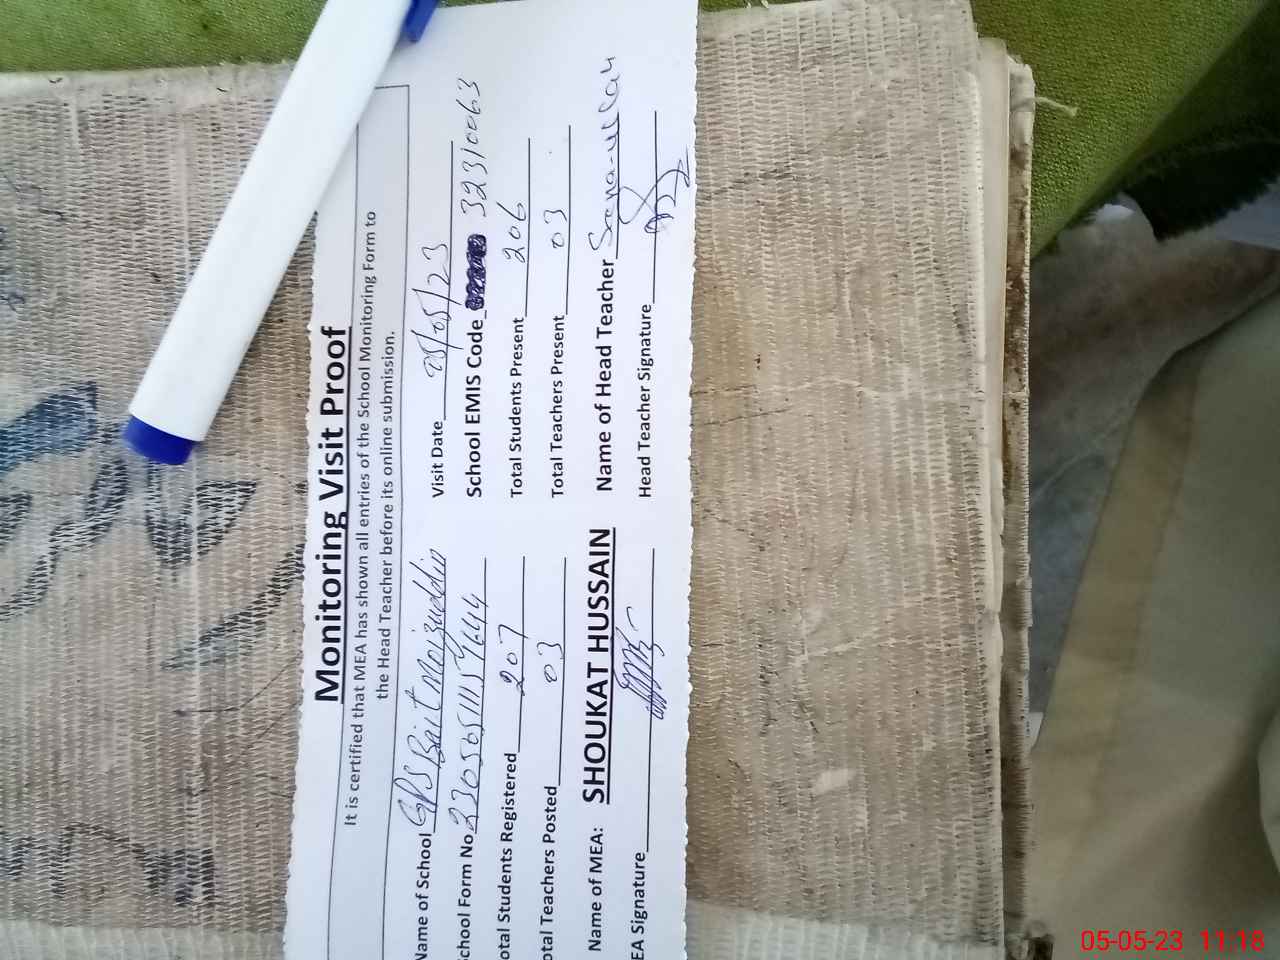 Monitoring Visit Proof
It is certified that MEA has shown all entries of the School Monitoring Form to
the Head Teacher before its online submission.
Name of School GPS Bait Moizuddin Visit Date 05/05/23
chool Form No 2305051115 School EMIS Code 32310063
otal Students Registered 207 Total Students Present 206
otal Teachers Posted 03 Total Teachers Present 03
Name of MEA: SHOUKAT HUSSAIN Name of Head Teacher Sana-ullah
EA Signature Head Teacher Signature
05-05-23 11:18